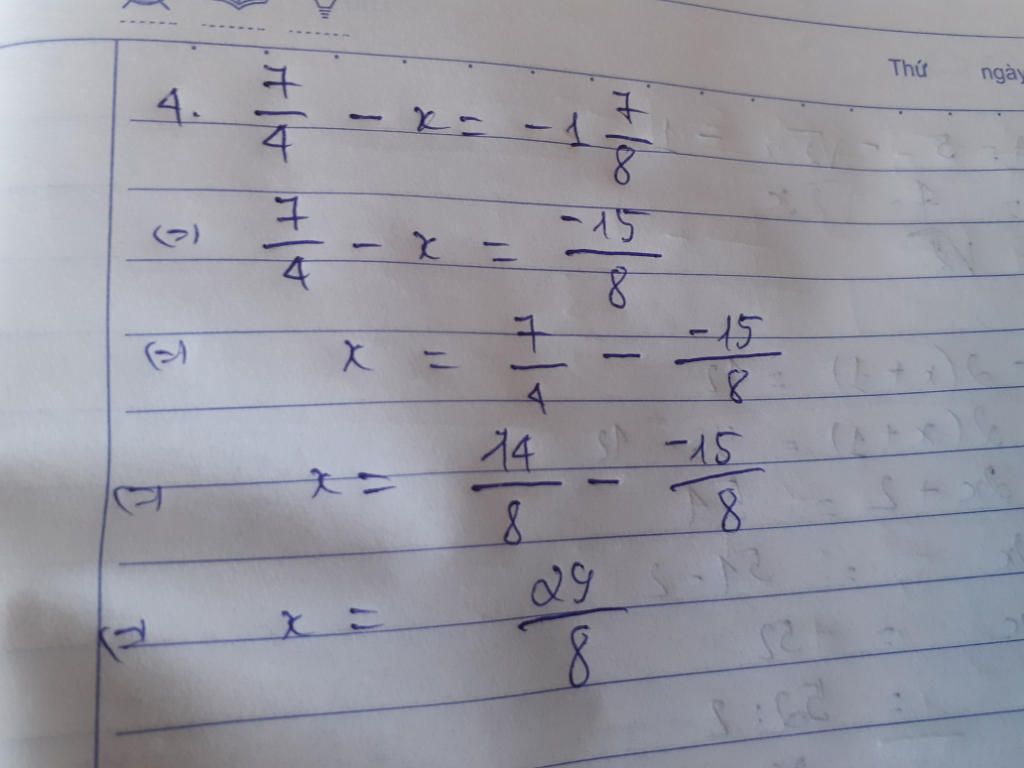 Thứ ngày
4. 7/4 - x = -1 7/8
(=) 7/4 - x = -15/8
(=) x = 7/4 - -15/8
(=) x = 14/8 - -15/8
(=) x = 29/8